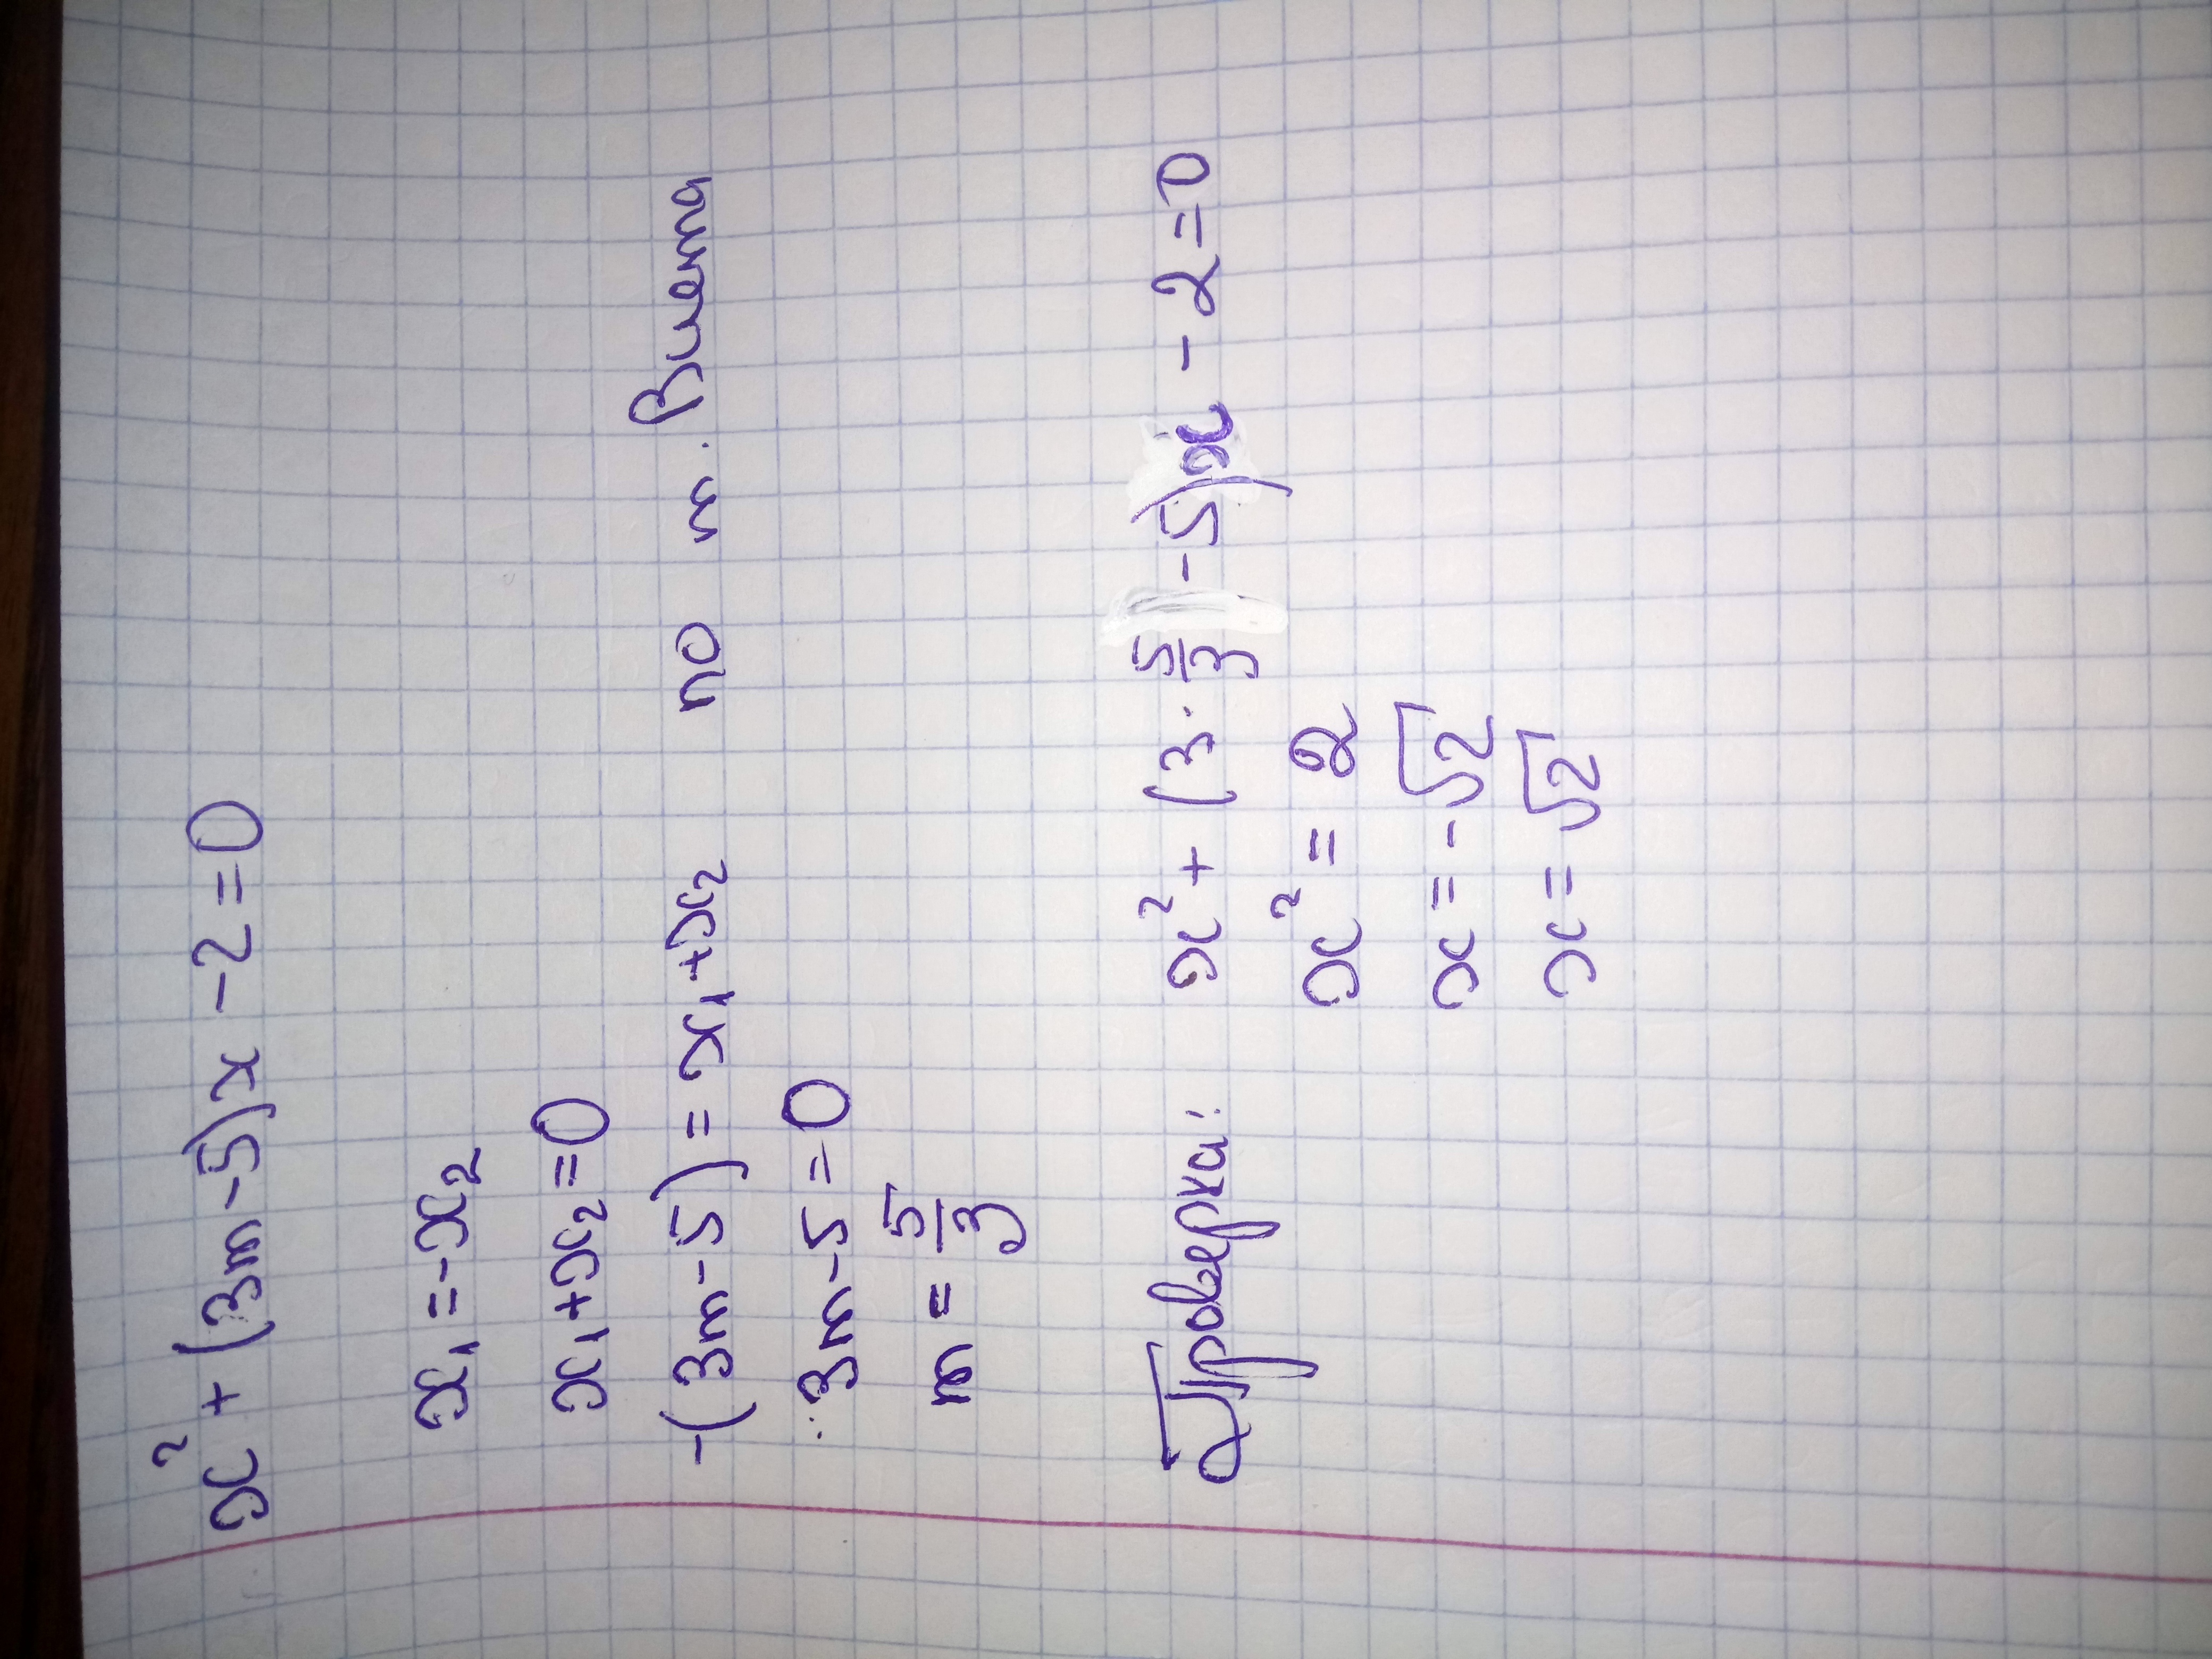 x² + (3m-5)x - 2 = 0
x₁ = -x₂
x₁ + x₂ = 0
-(3m-5) = x₁ + x₂ по т. Виета
3m - 5 = 0
m = 5/3
Проверка: x² + (3·5/3 - 5)x - 2 = 0
x² = 2
x = -√2
x = √2